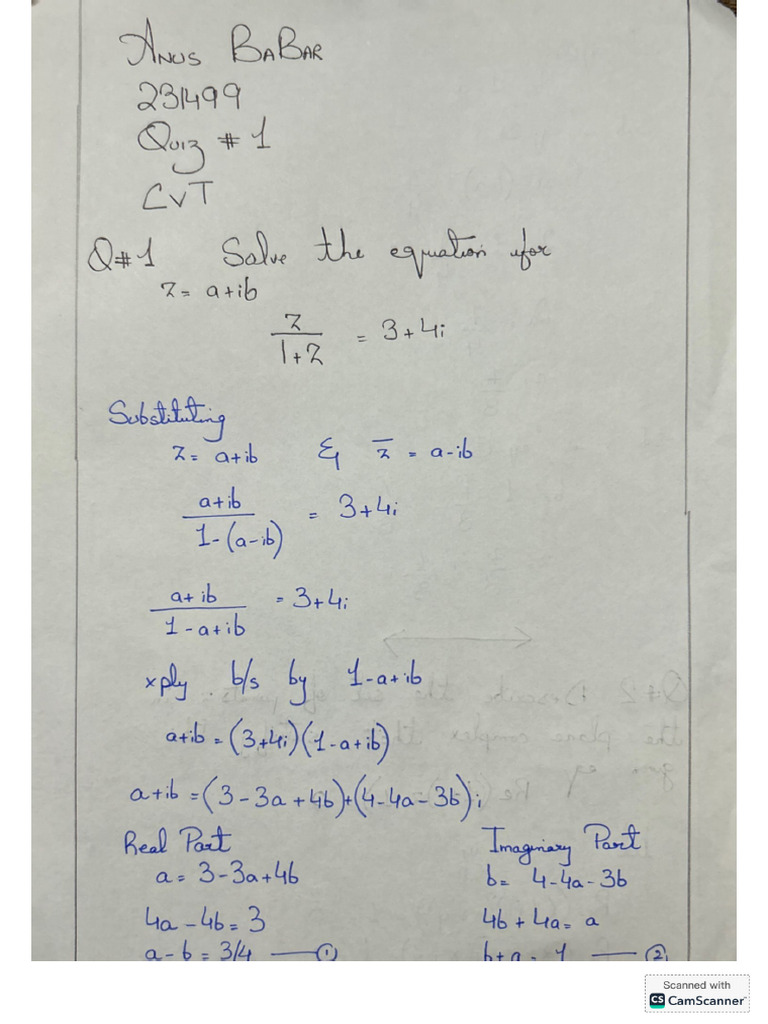 Anus BaBar
231499
Quiz # 1
CVT
Q#1 Solve the equation for
z = a+ib
z/1+z = 3+4i
Substituting
z = a+ib & z̅ = a-ib
a+ib/1-(a-ib) = 3+4i
a+ib/1-a+ib = 3+4i
xply. b/s by 1-a+ib
a+ib = (3+4i)(1-a+ib)
a+ib = (3-3a+4b)+(4-4a-3b)i
Real Part Imaginary Part
a = 3-3a+4b b = 4-4a-3b
4a-4b = 3 4b+4a = a
a-b = 3/4 —① b+a = 1 —②
Scanned with
CS CamScanner